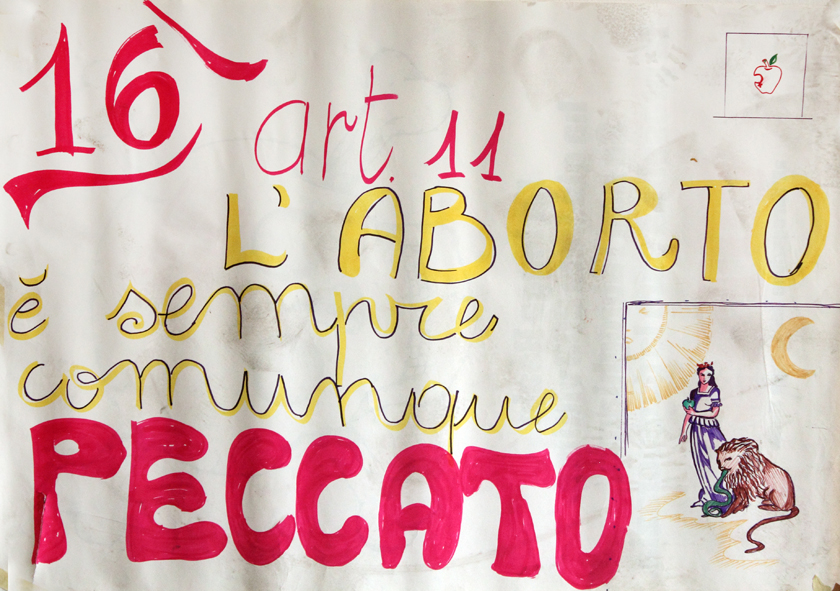 16
art. 11
L'ABORTO
è sempre
comunque
PECCATO